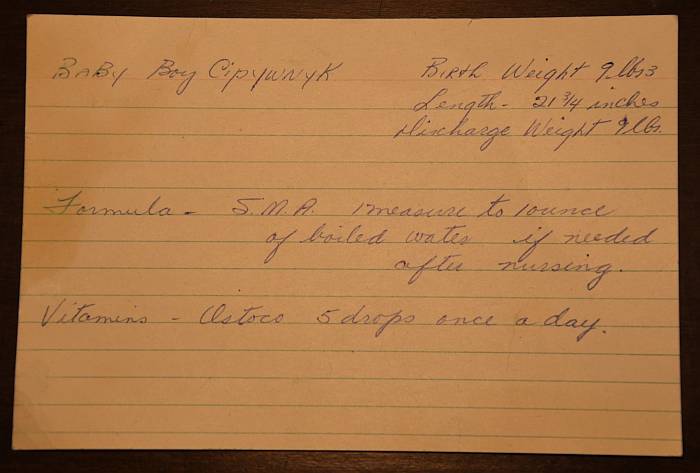 Baby Boy Cipywnyk
Birth Weight 9lbs3
Length - 21 3/4 inches
Discharge Weight 9lbs.
Formula - S.M.A. 1 measure to 1 ounce
of boiled water if needed
after nursing.
Vitamins - Ostoco 5 drops once a day.